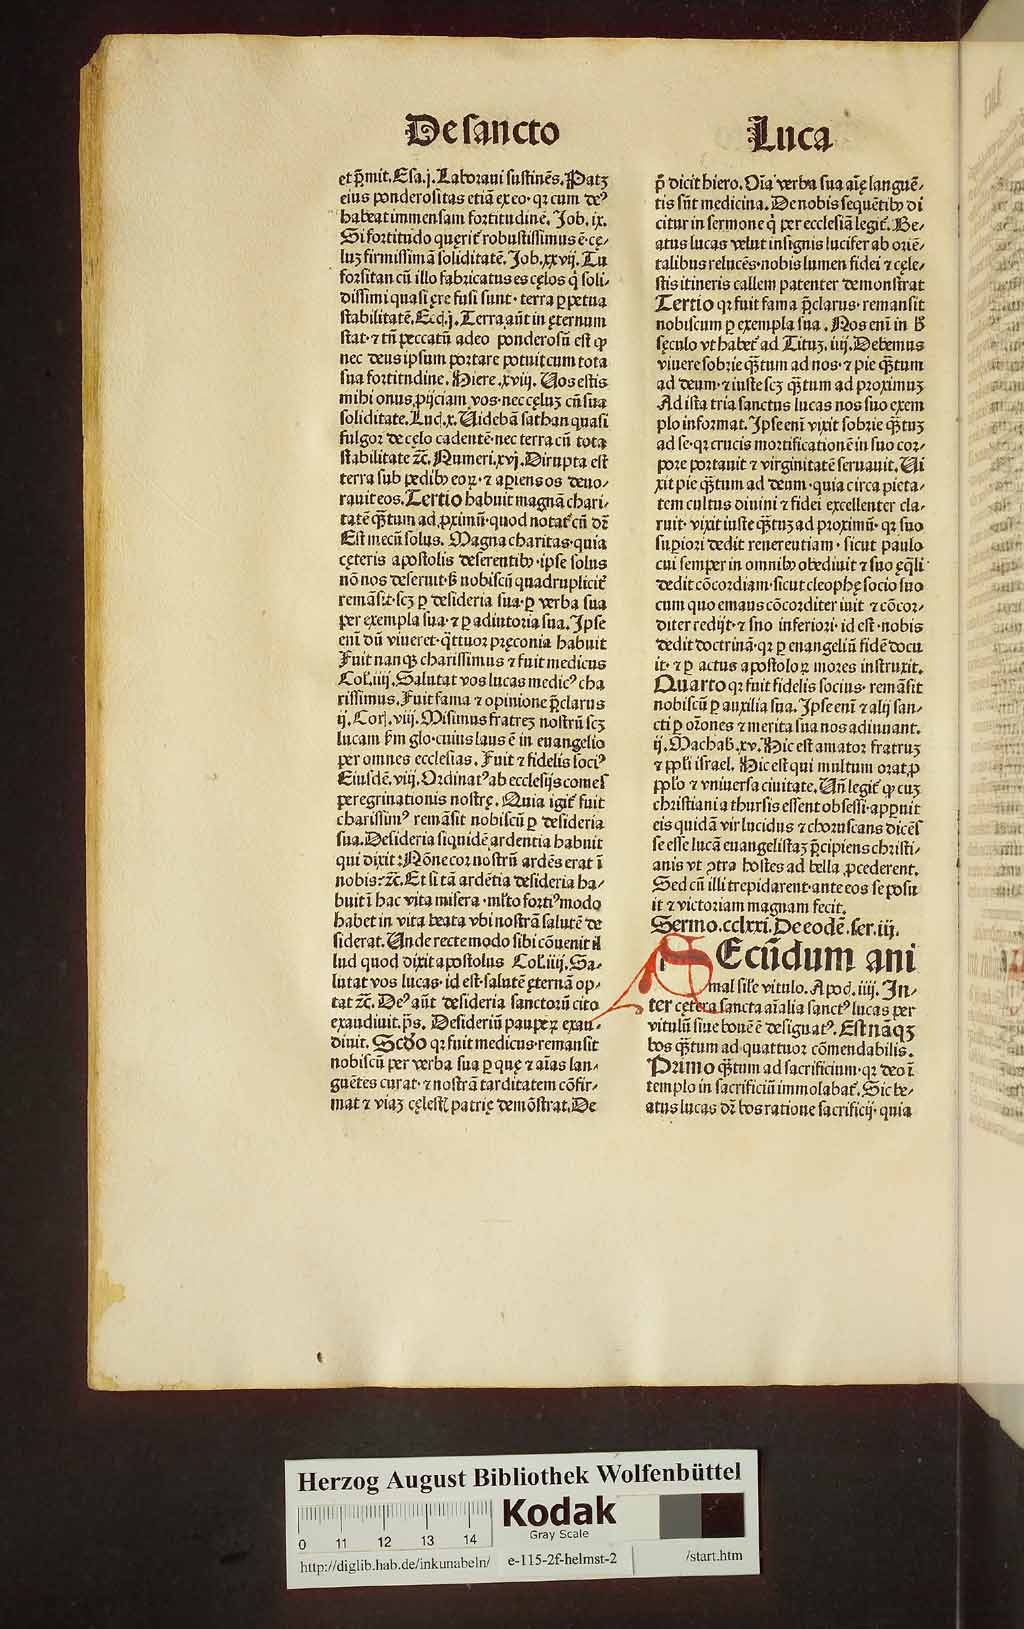 De sancto
Luca
et p̄mit. Esa.j. Laboraui sustinēs. Patꝫ
eius ponderositas etiā ex eo· qꝛ cum deꝰ
habeat immensam fortitudinē. Job .ix.
Si fortitudo q̨rit᷑ robustissimus ē· cę-
luꝫ firmissimā soliditatē. Job.xxvij. Tu
forsitan cū illo fabricatus es cęlos q̇ soli-
dissimi quasi ęre fusi sunt· terra ꝑpetua
stabilitatē. Ecc̄.j. Terra aūt in ęternum
stat· ⁊ tn̄ peccatū adeo ponderosū est ꝙ
nec deus ipsum portare potuit cum tota
sua fortitndine. Hiere .xviij. Uos estis
mihi onus, ꝓijciam vos· nec cęluꝫ cū sua
soliditate. Luc̄.x. Uidebā sathan quasi
fulgor de cęlo cadentē· nec terra cū tota
stabilitate ⁊c̄. Numeri.xvj. Dirupta est
terra sub pedibꝰ eoꝝ· ⁊ aperiens os deuo-
rauit eos. Tertio habuit magnā chari-
tatē q̄ꝫtum ad ꝓximū· quod notat᷑ cū dr̄
Est mecū solus. Magna charitas· quia
cęteris apostolis deserentibꝰ· ipse solus
nō nos deseruit· sꝫ nobiscū quadruplicit᷑
remāsit· scꝫ ꝑ desideria sua· ꝑ verba sua
per exempla sua· ⁊ ꝑ adiutoria sua. Ipse
enī dū viueret· q̇ttuor pręconia habuit
Fuit nanqꝫ charissimus ⁊ fuit medicus
Col̄.iiij. Salutat vos lucas medicꝰ cha
rissimus. Fuit fama ⁊ opinione p̄clarus
ij. Corj. viij. Misimus fratreꝫ nostrū scꝫ
lucam km̄ glo· cuius laus ē in euangelio
per omnes ecclesias. Fuit ⁊ fidelis sociꝰ
Eiusdē.viij. Ordinatꝰ ab ecclesijs comes
peregrinationis nostrę. Quia igit᷑ fuit
charissimꝰ remāsit nobiscū ꝑ desideria
sua. Desideria siquidē ardentia habuit
qui dixit: Nōne cor nostrū ardēs erat ī
nobis: ⁊c̄. Et si tā ardētia desideria ha-
buit ī hac vita misera· ml̄to fortiꝰ modo
habet in vita beata vbi nostrā salutē de
siderat. Unde recte modo sibi cōuenit il
lud quod dixit apostolus Col̄.iiij. Sa-
lutat vos lucas· id est· salutē ęternā op-
tat ⁊c̄. Deꝰ aūt desideria sanctorū cito
exaudiuit. p̄s. Desideriū pauperꝝ exau-
diuit. Scd̄o qꝛ fuit medicus· remansit
nobiscū per verba sua ꝑ quę ⁊ aīas lan-
guētes curat· ⁊ nostrā tarditatem cōfir-
mat ⁊ viaꝫ cęlestꝭ patrię demōstrat. De
p̄ dicit hiero. Oīa verba sua aīę languē-
tis sūt medicina. De nobis sequētibꝰ di
citur in sermone q̇ per ecclesiā legit᷑. Be-
atus lucas velut insignis lucifer ab oriē-
talibus relucēs· nobis lumen fidei ⁊ cęle-
stis itineris callem patenter demonstrat
Tertio qꝛ fuit fama p̄clarus· remansit
nobiscum ꝑ exempla sua. Nos enī in h̄
sęculo vt habet᷑ ad Tituꝫ. iij. Debemus
viuere sobrie q̄ꝫtum ad nos· ⁊ pie q̄ꝫtum
ad deum· ⁊ iuste scꝫ q̄ꝫtum ad proximuꝫ
Ad ista tria sanctus lucas nos suo exem
plo informat. Ipse enī vixit sobrie q̄ꝫtuꝫ
ad se· qꝛ crucis mortificationē in suo cor-
pore portauit ⁊ virginitatē seruauit. Ui
xit pie q̄ꝫtum ad deum· quia circa pieta-
tem cultus diuini ⁊ fidei excellenter cla-
ruit· vixit iuste q̄ꝫtuꝫ ad proximū· qꝛ suo
supiori dedit reuerentiam· sicut paulo
cui semper in omnibꝰ obediuit ⁊ suo ęq̄li
dedit cōcordiam· sicut cleophę socio suo
cum quo emaus cōcorditer iuit ⁊ cōcor-
diter redijt· ⁊ suo inferiori· id est· nobis
dedit doctrinā· qꝛ ꝑ euangeliū fidē docu
it· ⁊ ꝑ actus apostoloꝝ mores instruxit.
Quarto qꝛ fuit fidelis socius· remāsit
nobiscū ꝑ auxilia sua. Ipse enī ⁊ alij san-
cti ꝑ orōnes ⁊ merita sua nos adiuuant.
ij. Machab.xv. Hic est amator fratruꝫ
⁊ ppl̄i israel. Hic est qui multum orat, ꝓ
ppl̄o ⁊ vniuersa ciuitate. Un̄ legit᷑ ꝙ cuꝫ
christiani a thursis essent obsessi· apparuit
eis quidā vir lucidus ⁊ choruscans dicēs
se esse lucā euangelistaꝫ p̄cipiens christi-
anis vt ꝯtra hostes ad bella ꝓcederent.
Sed cū illi trepidarent· ante eos se posu
it ⁊ victoriam magnam fecit.
Sermo.cclxxi. De eodē. ser.iij.
SEcūdum ani
mal sil̄e vitulo. Apoc̄. iiij. In-
ter cętera sancta aīalia sanctꝰ lucas per
vitulū siue bouē ē designatꝰ. Est nāqꝫ
bos q̄ꝫtum ad quattuor cōmendabilis.
Primo q̄ꝫtum ad sacrificium· qꝛ deo ī
templo in sacrificiū immolabat᷑. Sic be-
atus lucas dr̄ bos ratione sacrificij· quia
Herzog August Bibliothek Wolfenbüttel
Kodak
Gray Scale
0 11 12 13 14
http://diglib.hab.de/inkunabeln/ e-115-2f-helmst-2 /start.htm